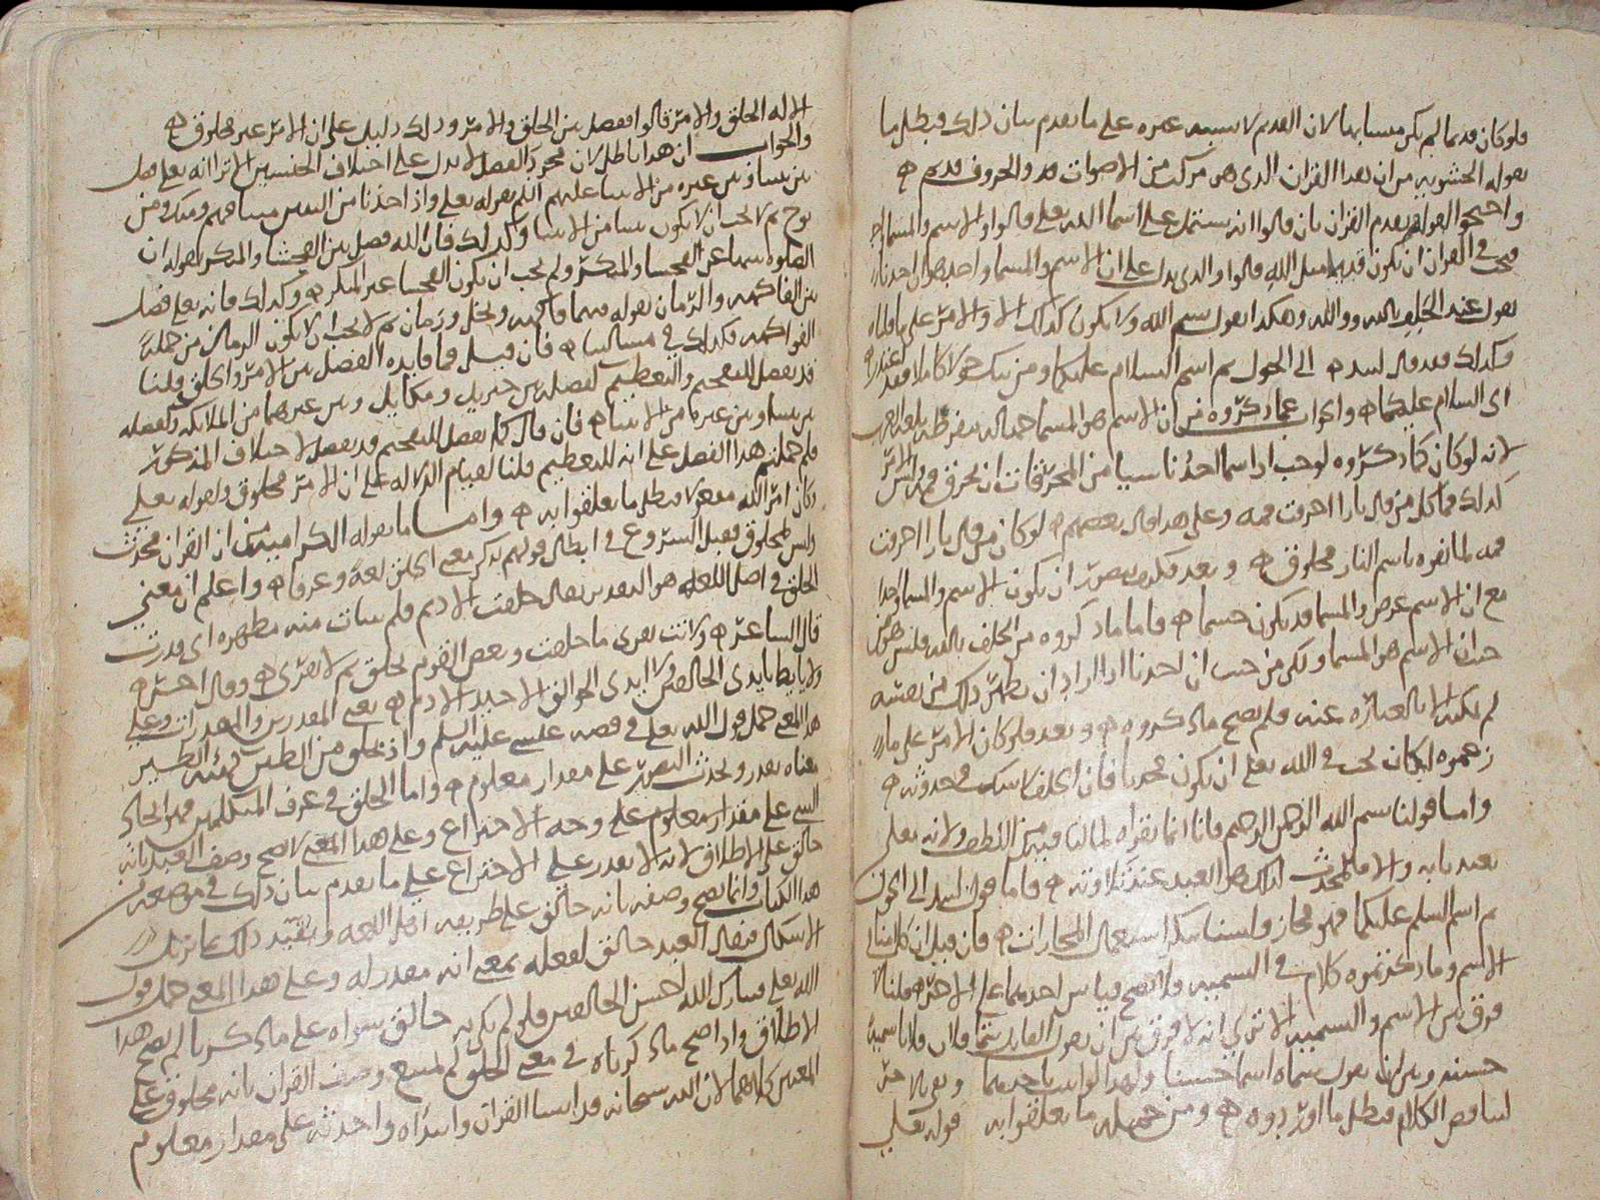 فلو كان قديما لم يكن مسابها لان القديم لا يشبه غيره على ما تقدم بيان ذلك فبطل ما
يقوله الحشويه من ان هذا القران الذي هو مركب من الاصوات والحروف قديم ه
واحتج القوم بقدم القران بان قالوا انه يشتمل على اسما الله تعلى قالوا والاسم والمسما
في القران ان يكون قديما مثل الله قالوا والذي يدل على ان الاسم والمسما واحد هو ان احدنا
يقول عند الحلف بالله ووالله وهكذا يقول بسم الله ولا يكون كذلك الا والامر على ما قلناه
وكذلك فقد قال لبيد ه الى الحول ثم اسم السلام عليكما ومن يبك حولا كاملا فقد اعتذر ه
اي السلام عليكما ه والجواب عما ذكروه من ان الاسم هو المسما جهاله مفرطه
لانه لو كان كما ذكروه لوجب اذا سما احدنا شيا من المحرقات ان يحرق فمه وليس الامر
كذلك فما كل من قال نارا احرقت فمه وعلى هذا قال بعضهم ه لو كان من قال نارا احرقت
فمه لما تفوه باسم النار مخلوق ه وبعد فكيف يصح ان يكون الاسم والمسما واحدا
مع ان الاسم عرض والمسما قد يكون جسما ه فاما ما ذكروه من الحلف بالله فليس هو من
حيث ان الاسم هو المسما ولكن من حيث ان احدنا اذا اراد ان يظهر ذلك من نفسه
لم يمكنه الا بالعباره عنه فلم يصح ما ذكروه ه وبعد فلو كان الامر على ما
زعموه لكان يجب في الله تعلى ان يكون محدثا فان الحلف لا شك في حدوثه ه
واما قولنا بسم الله الرحمن الرحيم فانا انما نقراه لما لنا فيه من اللطف ولانه تعلى
تعبدنا به والا فالمحدث لذلك هو العبد عند تلاوته ه فاما قول لبيد الى الحول
ثم اسم السلم عليكما فهو مجاز ولسنا ننكر استعمال المجازات ه فان قيل ان كلامنا في
الاسم وما ذكرتموه كلام في التسميه ولا يصح قياس احدهما على الاخر ه قلنا لا
فرق بين الاسم والتسميه الا ترى انه لا فرق بين ان يقول القايل سما فلان فلانا تسميه
حسنه وبين ان يقول سماه اسما حسنا ولهذا لو اثبت باحدهما ونفى بالاخر
لتناقض الكلام فبطل ما اوردوه ه ومن جمله ما يتعلقوا به قوله تعلى
الا له الخلق والامر قالوا ففصل بين الخلق والامر وذلك دليل على ان الامر غير مخلوق ه
والجواب ان هذا باطل لان مجرد الفصل لا يدل على اختلاف الجنسين الا ترا انه تعلى فصل
بين نبينا وبين غيره من الانبيا عليهم السلم بقوله تعلى واذ اخذنا من النبيين ميثاقهم ومنك ومن
نوح ثم لا يجب ان لا يكون نبينا من الانبيا وكذلك فان الله فصل بين الفحشا والمنكر بقوله ان
الصلوه تنها عن الفحشا والمنكر ولم يجب ان يكون الفحشا غير المنكر ه وكذلك فانه تعلى فصل
بين الفاكهه والرمان بقوله فيهما فاكهه ونخل ورمان ثم لا يجب ان لا يكون الرمان من جمله
الفواكه فكذلك في مسالتنا ه فان قيل فما فايده الفصل بين الامر والخلق قلنا
قد يفصل للتفخيم والتعظيم كفصله بين جبريل وميكايل وبين غيرهما من الملايكه وكفصله
بين نبينا وبين غيره من الانبيا ه فان قال كما يفصل للتفخيم قد يفصل لاختلاف المذكور
فلم حملتم هذا الفصل على انه للتعظيم قلنا لقيام الدلاله على ان الامر مخلوق ولقوله تعلى
وكان امر الله مفعولا فبطل ما تعلقوا به ه واما ما يقوله الكراميه من ان القران محدث
وليس بمخلوق فقبل الشروع في ابطال قولهم نذكر معنى الخلق لغة وعرفا ه واعلم ان معنى
الخلق في اصل اللغه هو التقدير يقال خلقت الاديم فلم يبات منه مطهره اي قدرت
قال الشاعر ه ولانت تفرى ما خلقت وبعض القوم يخلق ثم لا يفرى ه وقال اخر ه
ولا يئط بايدي الخالقين ولا ايدي الخوالق الا جيد الادم ه يعني المقدرين والمقدرات وعلى
هذا المعنى حمل قول الله تعلى في قصه عيسى عليه السلم واذ تخلق من الطين كهيئه الطير
معناه تقدر وتحدث التصوير على مقدار معلوم ه واما الخلق في عرف المتكلمين فهو ايجاد
الشي على مقدار معلوم على وجه الاختراع وعلى هذا المعنى لا يصح وصف العبد بانه
خالق على الاطلاق لانه لا يقدر على الاختراع على ما تقدم بيان ذلك في موضعه من
هذا الكتاب وانما يصح وصفه بانه خالق على طريقه اهل اللغه وتقيد ذلك بما يزيل
الاشكال فيقال العبد خالق لفعله بمعنى انه مقدر له وعلى هذا المعنى حمل قول
الله تعلى فتبارك الله احسن الخالقين فلو لم يكن خالق سواه على ما ذكرنا لم يصح هذا
الاطلاق واذا صح ما ذكرناه في معنى الخلق لم يمتنع وصف القران بانه مخلوق على
المعنيين كلاهما لان الله سبحانه قد انشا القران وابتداه واحدثه على مقدار معلوم